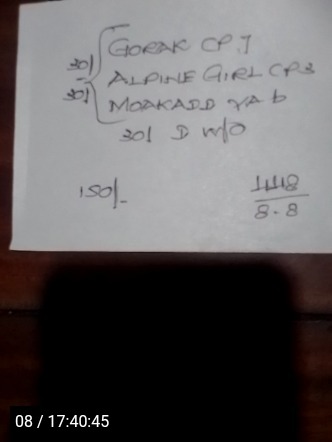 30/ GORAK CP 7
ALPINE GIRL CP3
30/ MOAKADD
30/ D w/o
150/-
1118
8.8
08 / 17:40:45